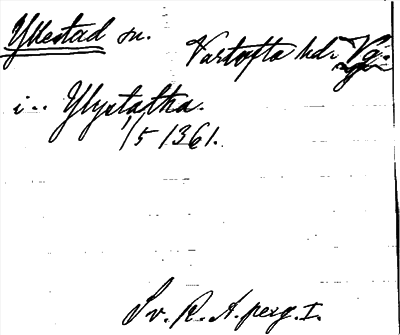 Yllestad sn. Vartofta hd. Vg.
i .. Ylystatha.
1/5 1361.
Sv. R. A. perg. I.